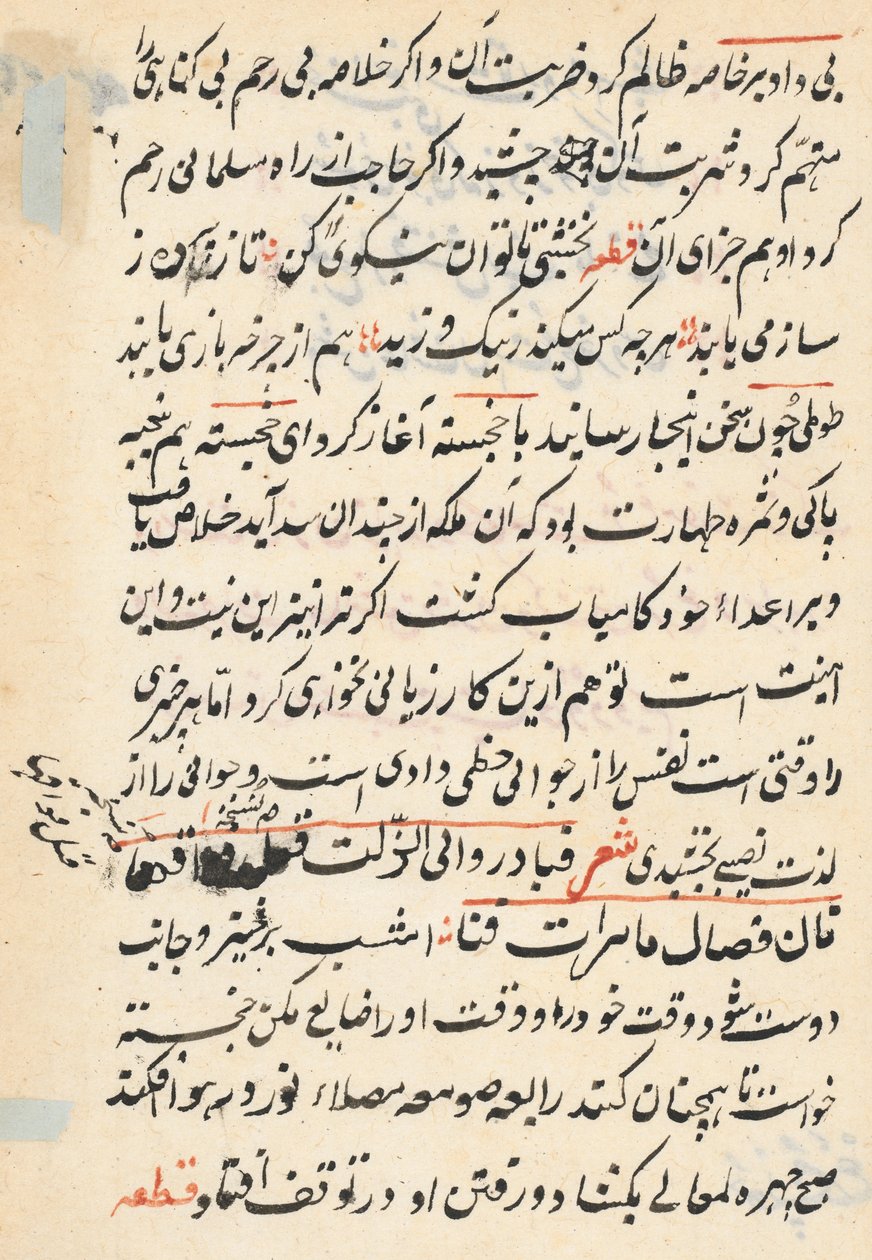 بی داد بر خاصه ظالم کرد ضربت آن و اکر خلاصه بی رحم بی کناهی را
متهّم کرد شربت آن چشید و اکر حاجب از راه سلمانی رحم
کرد او هم جزای آن قطعه نخشبی تا توان نیکوی کن تا ز
ساز می یابند هر چه کس میکند ز نیک و ز بد هم از چرخه بازی یابند
طوطی چون سخن اینجا رسانید با خجسته آغاز کرد ای خجسته هم نتیجه
پاکی و ثمره طهارت بود که آن ملکه از چندان شداید خلاص یافت
و بر اعداء خود کامیاب کشت اکر ترا نیز این نیت و این
است تو هم ازین کار زیانی نخواهی کرد امّا هر چیزی
را وقتی است نفس را از جوانی حظی دادی است و جوانی را از
لذت نصیبی بخشیدی شعر فبادر والی الزلت
فان فصال امشب برخیز و جانب
دوست شو و وقت خود را و وقت او را ضایع مکن خجسته
خواست تا همچنان کند رابعه صومعه مصلاء نور در هوا افکند
صبح چهره لمعالی بکشاد و رفتن او در توقف افتاد قطعه